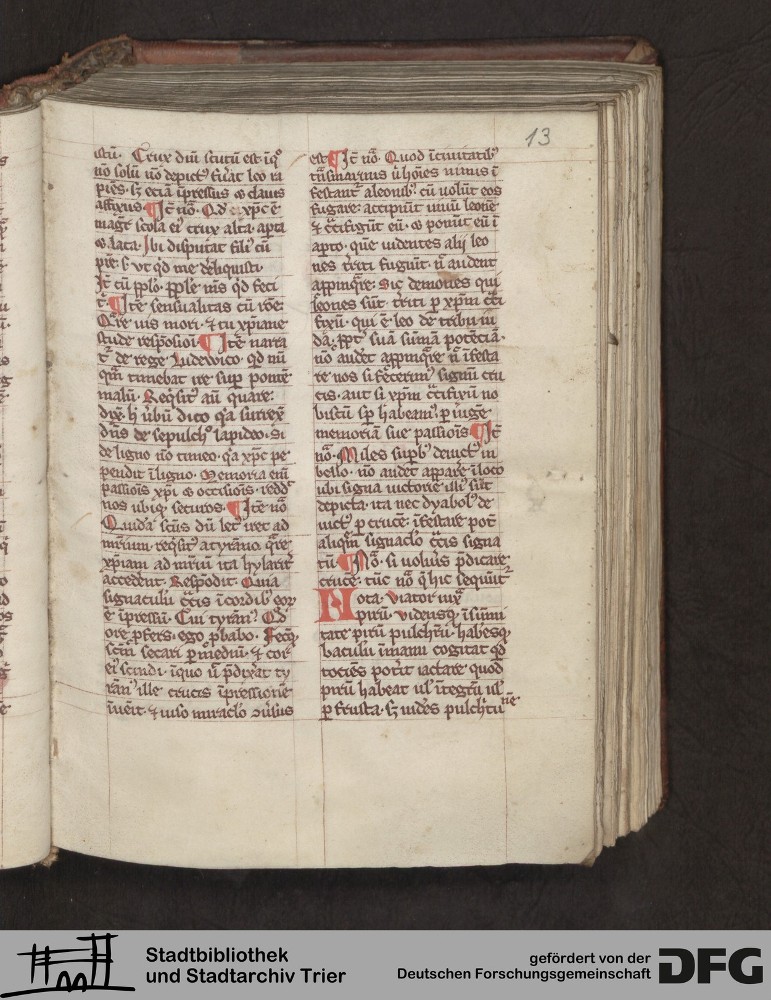 13
istū. Crux diū scutū est. ī qͦ
nō solū nō depictꝰ fuͥat leo ra
piēs. sꝫ eciā īpressus ⁊ clauis
affixus ¶ Jt̄ nō. Qd xp̄c ē
magr̄ scola eiꝰ crux alta apta
⁊ lata. Jbi disputat filiꝰ cū
pr̄e. s. vt qd me deͣliquisti.
Jt̄ cū pplo. pple ms qd feci
t̄. ¶ Jtē sensualitas cū rōe.
Qͣre uis mori. ⁊ tu xp̄iane
stude respōsioī ¶ Jtē narra
tͬ de rege Ludewico. qd nū
qͣm timebat ire suꝑ pontē
malū. Reqͥsitꝰ aū quare.
dixͭ h ūbū dico qͥa surrex
dn̄s de sepulchͦ lapideo. si
de ligno nō timeo. qͥa xp̄c pe
pendit ī ligno. Memoria eīm
passiōis xp̄i ⁊ occisiōis. redd
nos ubiqꝫ securos. ¶ Jtē nō
Quidā scūs dū
mr̄rium reqͥsitꝰ a tyrāno qͣre
xp̄iani ad mr̄riū ita hylariꝰ
accedent. Respōdit. Quia
signaculū cͨcis ī cordibꝰ eoꝝ
ē īpressū. Cui tyrānꝰ. Qd
ore ꝓfers. ego ꝓbabo. Fecitqꝫ
scm̄ secari ꝑ mediū. ⁊ cor
eiꝰ scindi. ī quo ū p̄dixͣat ty
rānꝰ ille crucis īpressionē
īuēit. ⁊ uiso miraclo ꝯuͥsus
est ¶ Jt̄ nō. Quod ī ciuitatibꝰ
tͣsmarinis ū hōīes nimis ī
festant a leonibꝰ. cū uolūt eos
fugare. accipiūt unū leonē
⁊ cͨcifigūt eū. ⁊ ponūt eū ī
apto. quē uidentes alij leo
nes tͥriti fugiūt. nͨ audent
appinqͣre. Sic demones qui
leones sūt. tͥriti p xp̄m cͨci
fixū. qui ē leo de tribu iu
da. ꝓptͬ suā sūmā potēciā.
nō audēt appinqͣre nͨ īfesta
re nos si fecerimꝰ signū cru
cis. aut si xp̄m cͨcifixū no
biscū sꝑ habeamꝰ ꝑ iugē
memoriā sue passiōis ¶ Jt̄
nō. Miles supbꝰ deuictꝰ in
bello. nō audet appare ī loco
ubi signa uictorie illiꝰ sūt
depicta. ita nec dyabolꝰ de
uictꝰ ꝑ crucē. īfestare pōt
aliqͣm signaclo cͨcis signa
tū ¶ Nō. si uolūis p̄dicare
crucē. tūc nō q̄ hic sequūt̄
Nota. Viator iuxͣ
pirū. vidensqꝫ ī sūmi
tate pirū pulchrū. habēsqꝫ
baculū ī manu cogitat qd
tociēs potͥit iactare quod
pirū habeat ul īteg͛ū ul
p frusta. sꝫ uidēs pulchͥtu
nē
Stadtbibliothek
und Stadtarchiv Trier
gefördert von der
Deutschen Forschungsgemeinschaft
DFG